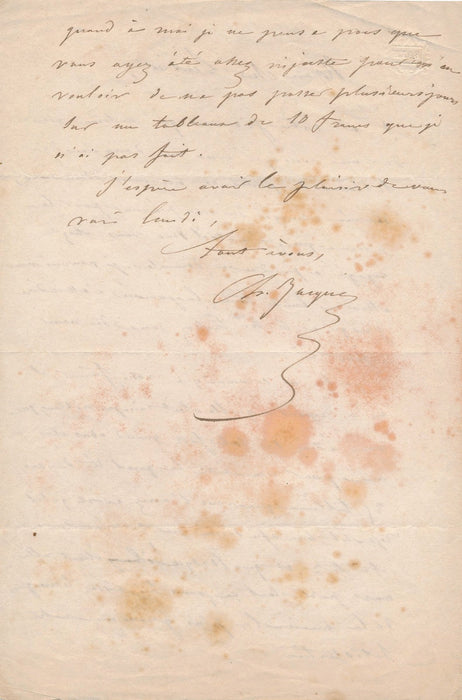 quand à moi je ne pense pas que
vous ayez été assez injuste pour m'en
vouloir de ne pas passer plusieurs jours
sur un tableau de 10 francs que je
n'ai pas fait.
J'espère avoir le plaisir de vous
voir lundi,
Tout à vous,
Ch. Jacque